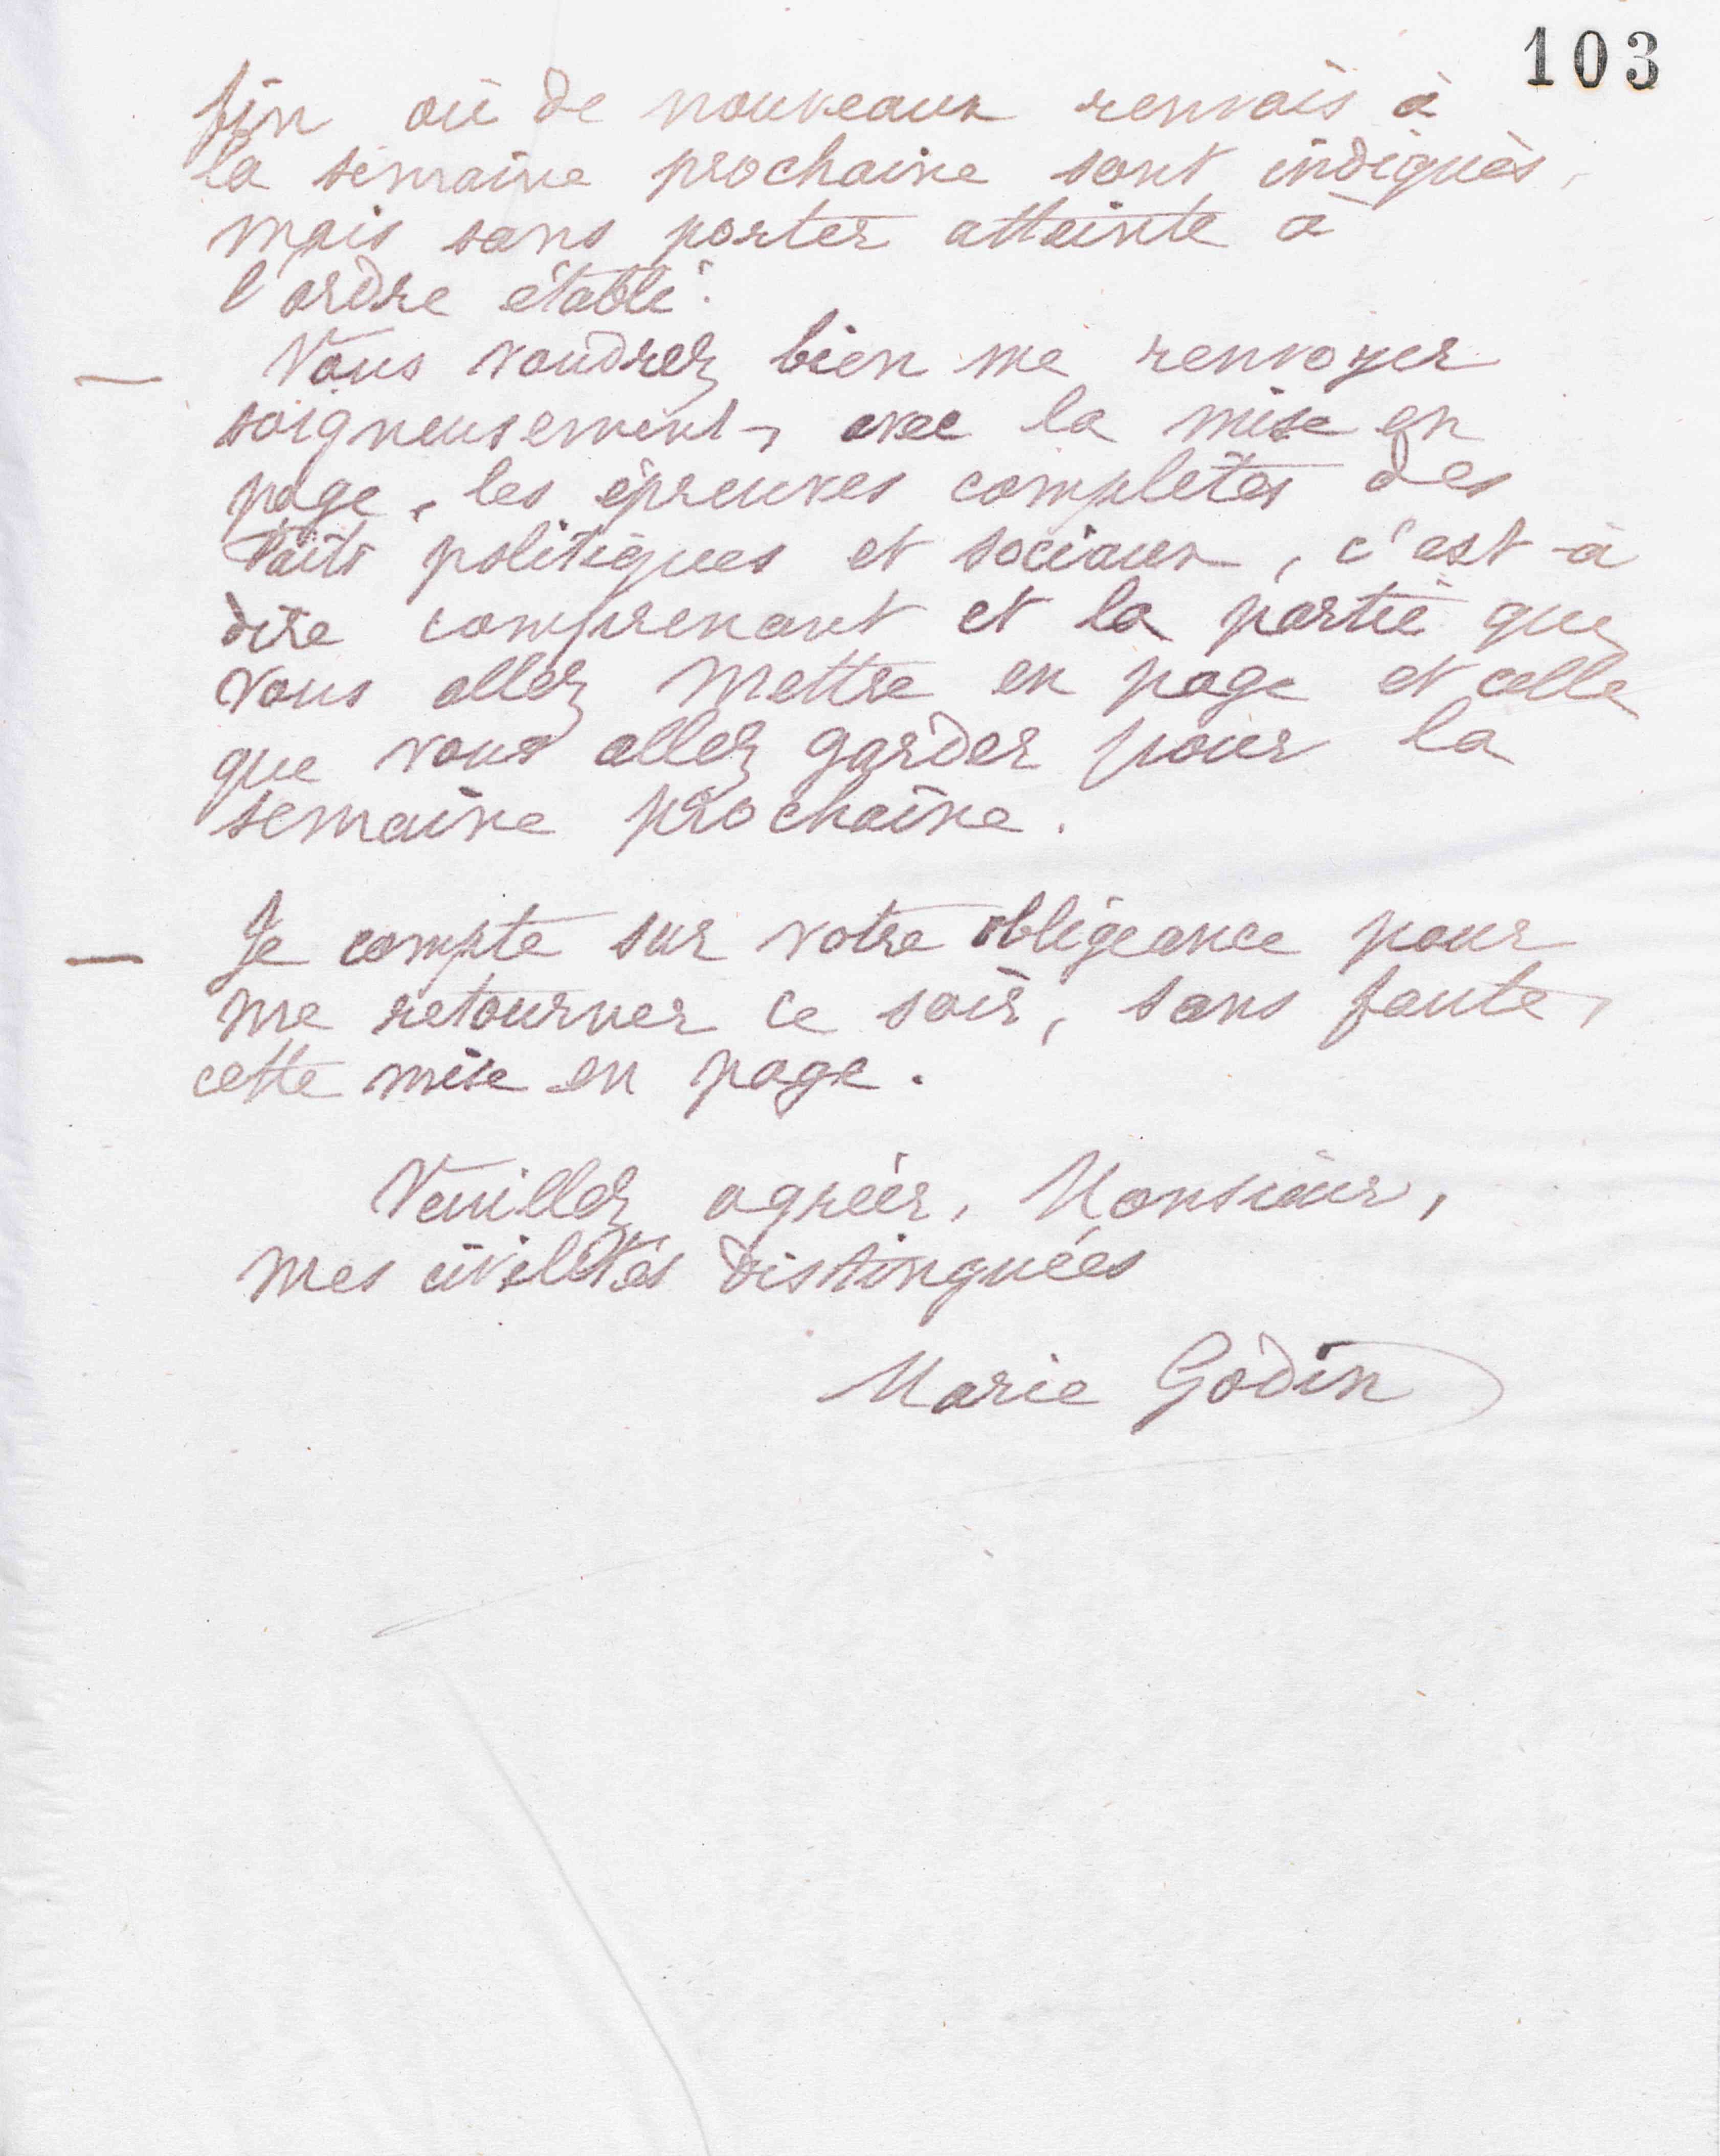 103
fin où de nouveaux renvois à
la semaine prochaine sont indiqués,
mais sans porter atteinte à
l'ordre établi.
— Vous voudrez bien me renvoyer
soigneusement, avec la mise en
page, les épreuves complètes des
Faits politiques et sociaux, c'est-à
dire comprenant et la partie que
vous allez mettre en page et celle
que vous allez garder pour la
semaine prochaine.
— Je compte sur votre obligeance pour
me retourner ce soir, sans faute,
cette mise en page.
Veuillez agréer, Monsieur,
mes civilités distinguées
Marie Godin